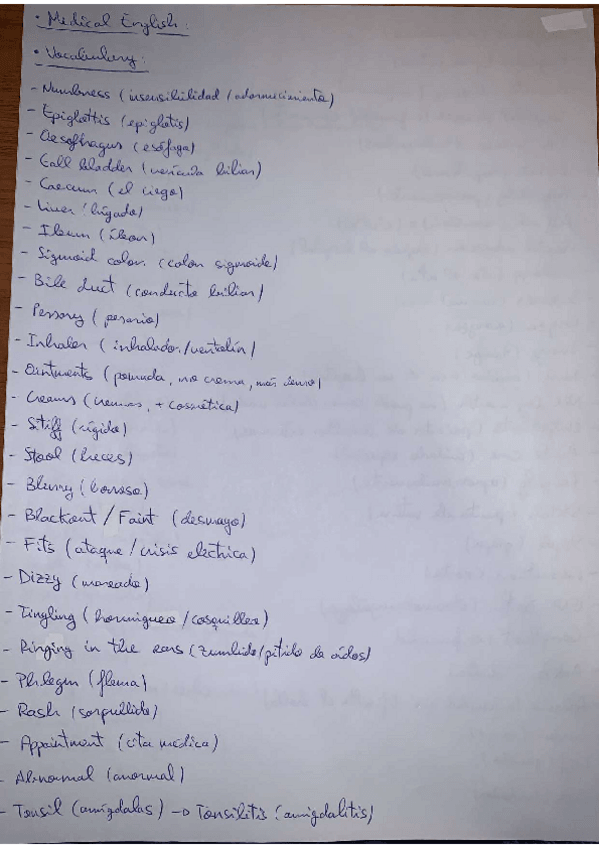 • Medical English:
• Vocabulary:
- Numbness (insensibilidad/adormecimiento)
- Epiglottis (epiglotis)
- Oesophagus (esófago)
- Gall bladder (vesícula biliar)
- Caecum (el ciego)
- Liver (hígado)
- Ileum (íleon)
- Sigmoid colon (colon sigmoide)
- Bile duct (conducto biliar)
- Pessary (pesario)
- Inhaler (inhalador/ventolín)
- Ointments (pomada, no crema, más denso)
- Creams (cremas, + cosmética)
- Stiff (rígido)
- Stool (heces)
- Blurry (borroso)
- Blackout / Faint (desmayo)
- Fits (ataque / crisis eléctrica)
- Dizzy (mareado)
- Tingling (hormigueo / cosquilleo)
- Ringing in the ears (zumbido/pitido de oídos)
- Phlegm (flema)
- Rash (sarpullido)
- Appointment (cita médica)
- Abnormal (anormal)
- Tonsil (amígdalas) → Tonsilitis (amigdalitis)